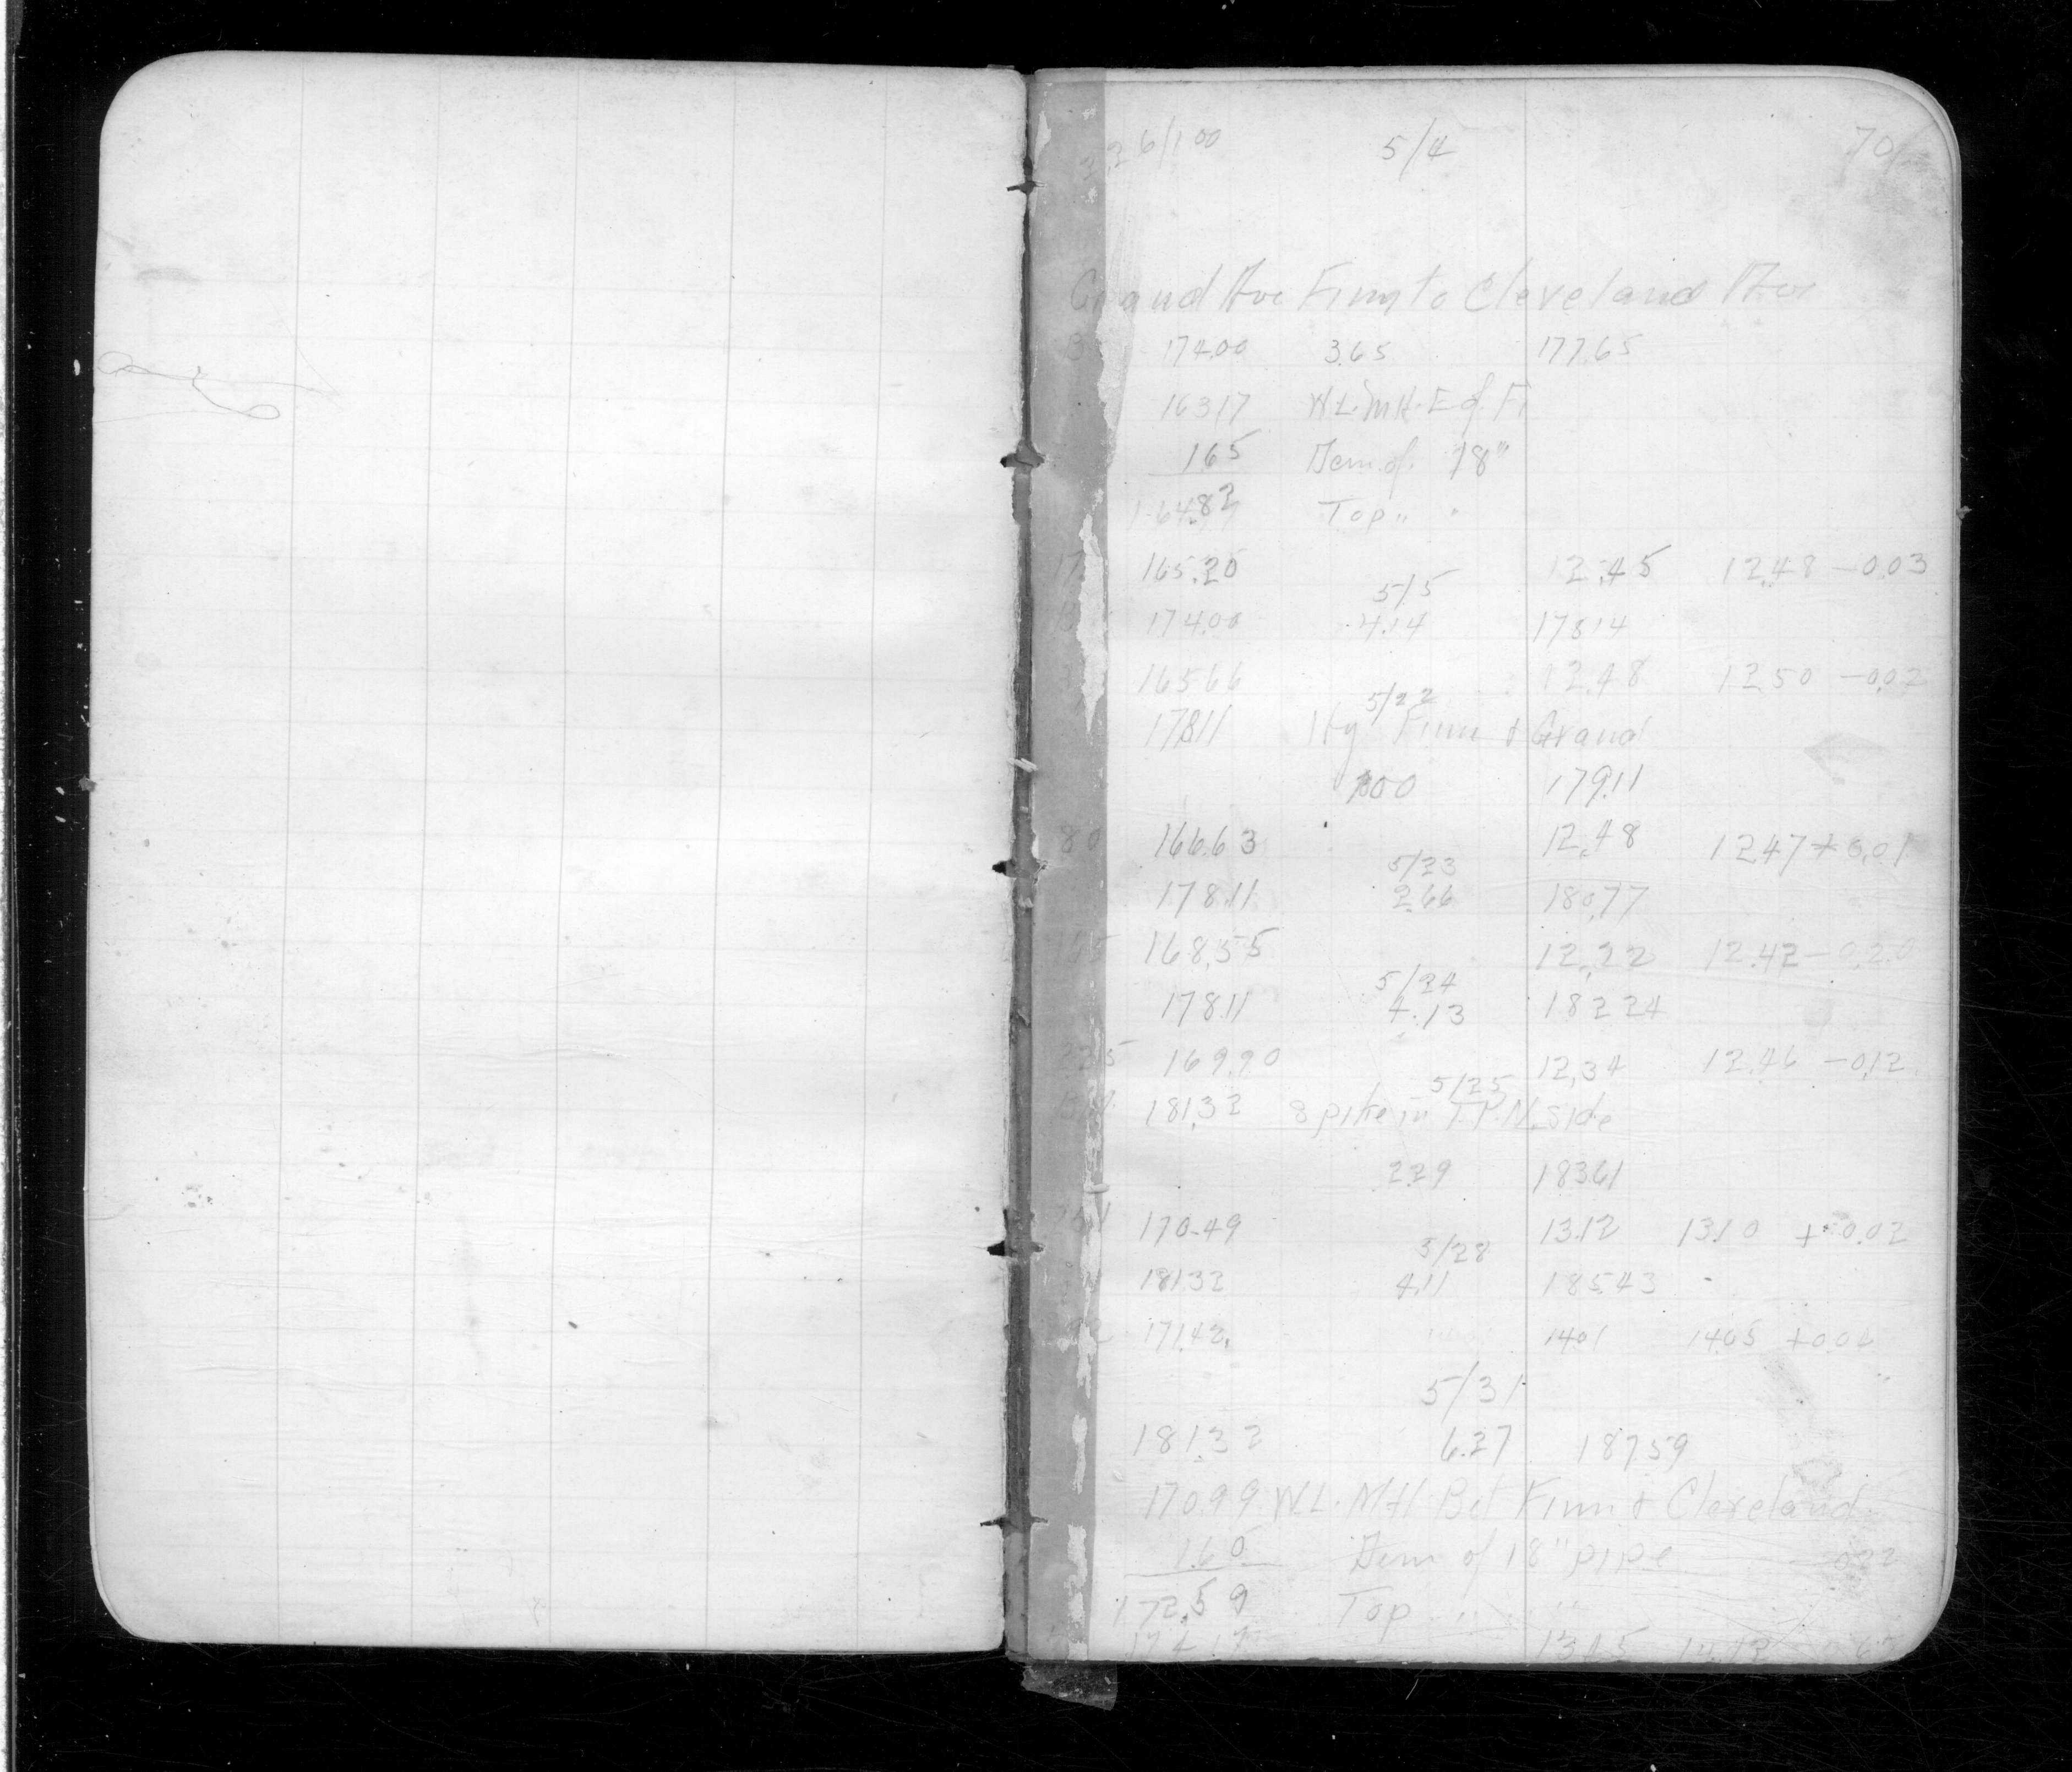 6/1 00 5/4 70
Grand Ave Finn to Cleveland Ave
B 174.00 3.65 177.65
163.17 W.L. M.H. E of Fi
165 Dem. of 18"
164.82 Top " "
165.20 12.45 12.48 -0.03
5/5
174.00 4.14 178.14
165.66 12.48 12.50 -0.02
5/22
178.11 Hy Finn & Grand
1.00 179.11
80 166.63 12.48 12.47 +0.01
5/23
178.11 2.66 180.77
168.55 12.22 12.42 -0.20
5/24
178.11 4.13 182.24
169.90 12.34 12.46 -0.12
5/25
181.32 Spike in T.P. N. side
2.29 183.61
170.49 13.12 13.10 +0.02
5/28
181.32 4.11 185.43
171.42 14.01 14.05 +0.04
5/31
181.32 6.27 187.59
170.99 W.L. M.H. Bet Finn & Cleveland
1.60 Dem of 18" pipe
172.59 Top " "
13.45